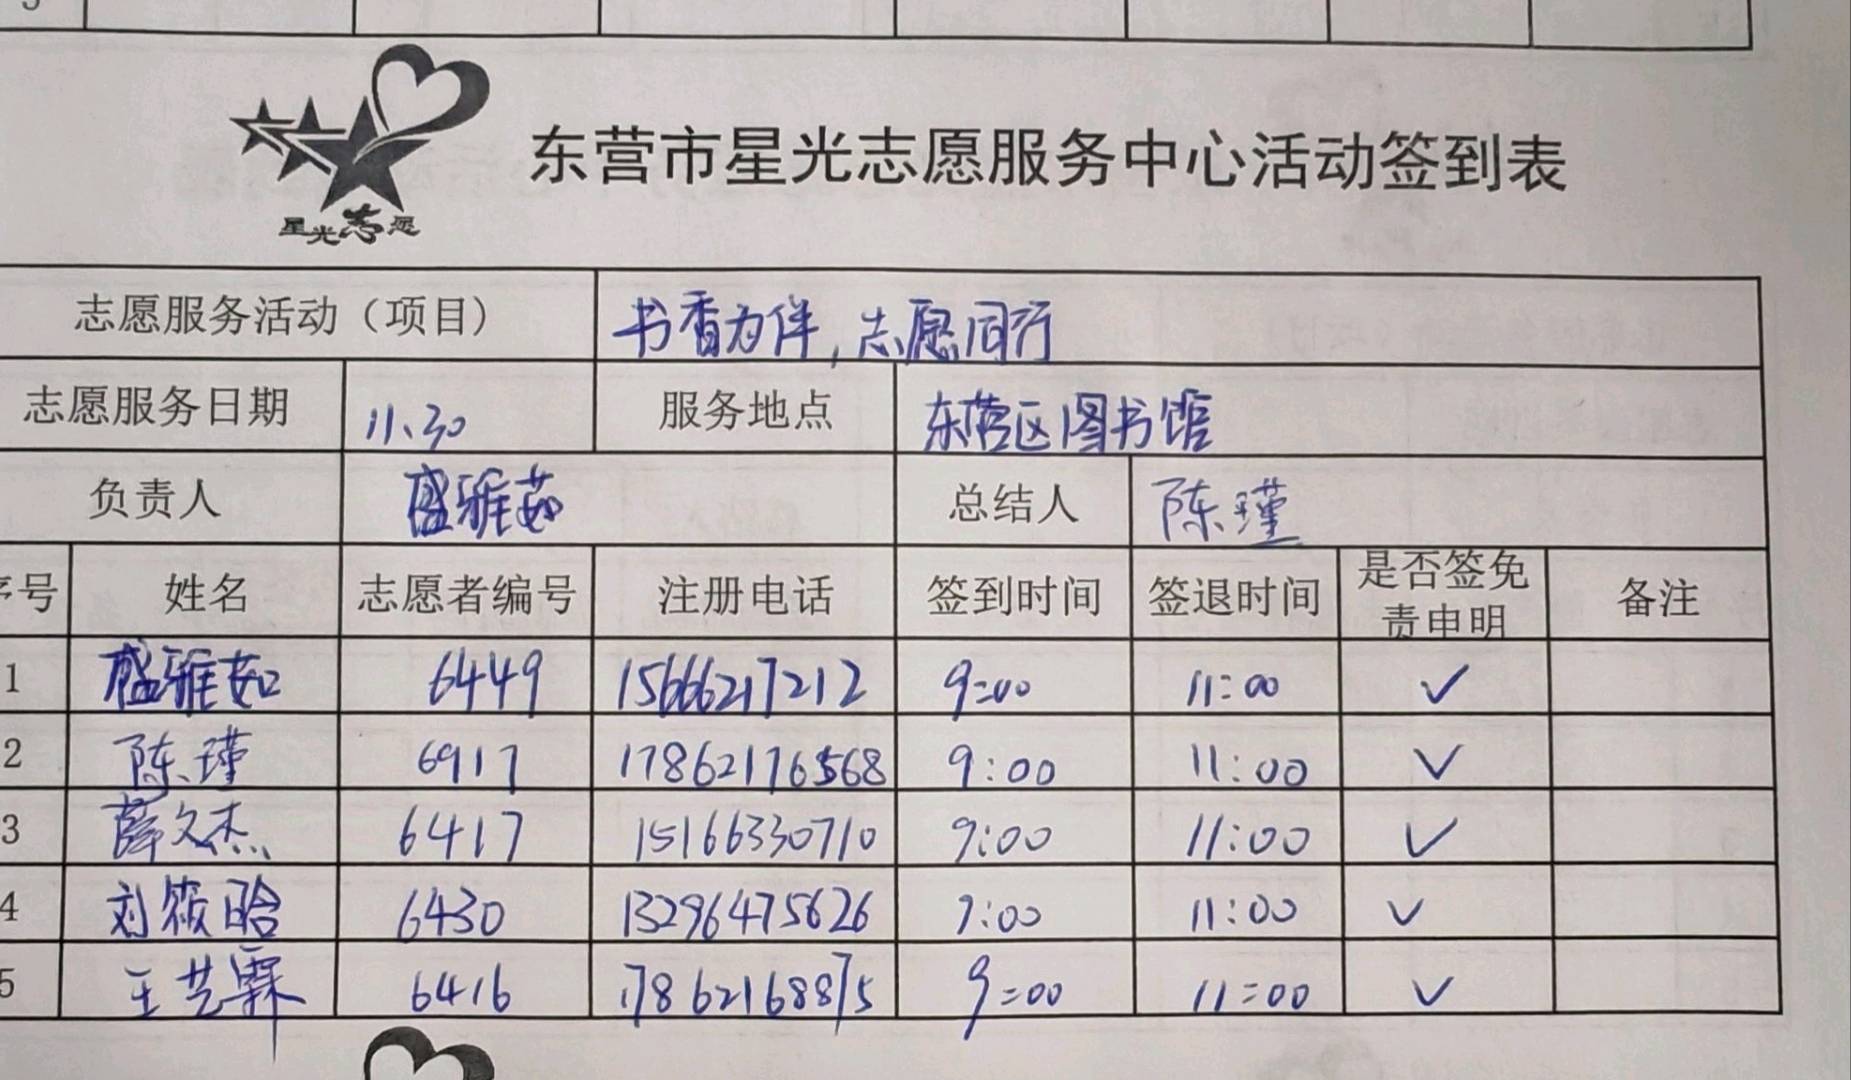 星光志愿
东营市星光志愿服务中心活动签到表
志愿服务活动（项目） 书香为伴，志愿同行
志愿服务日期 11.30 服务地点 东营区图书馆
负责人 盛雅茹 总结人 陈瑾
序号 姓名 志愿者编号 注册电话 签到时间 签退时间 是否签免责申明 备注
1 盛雅茹 6449 15666217212 9:00 11:00 ✓
2 陈瑾 6917 17862176568 9:00 11:00 ✓
3 薛文杰 6417 15166330710 9:00 11:00 ✓
4 刘筱晗 6430 13296475626 9:00 11:00 ✓
5 王艺霖 6416 17862168875 9:00 11:00 ✓